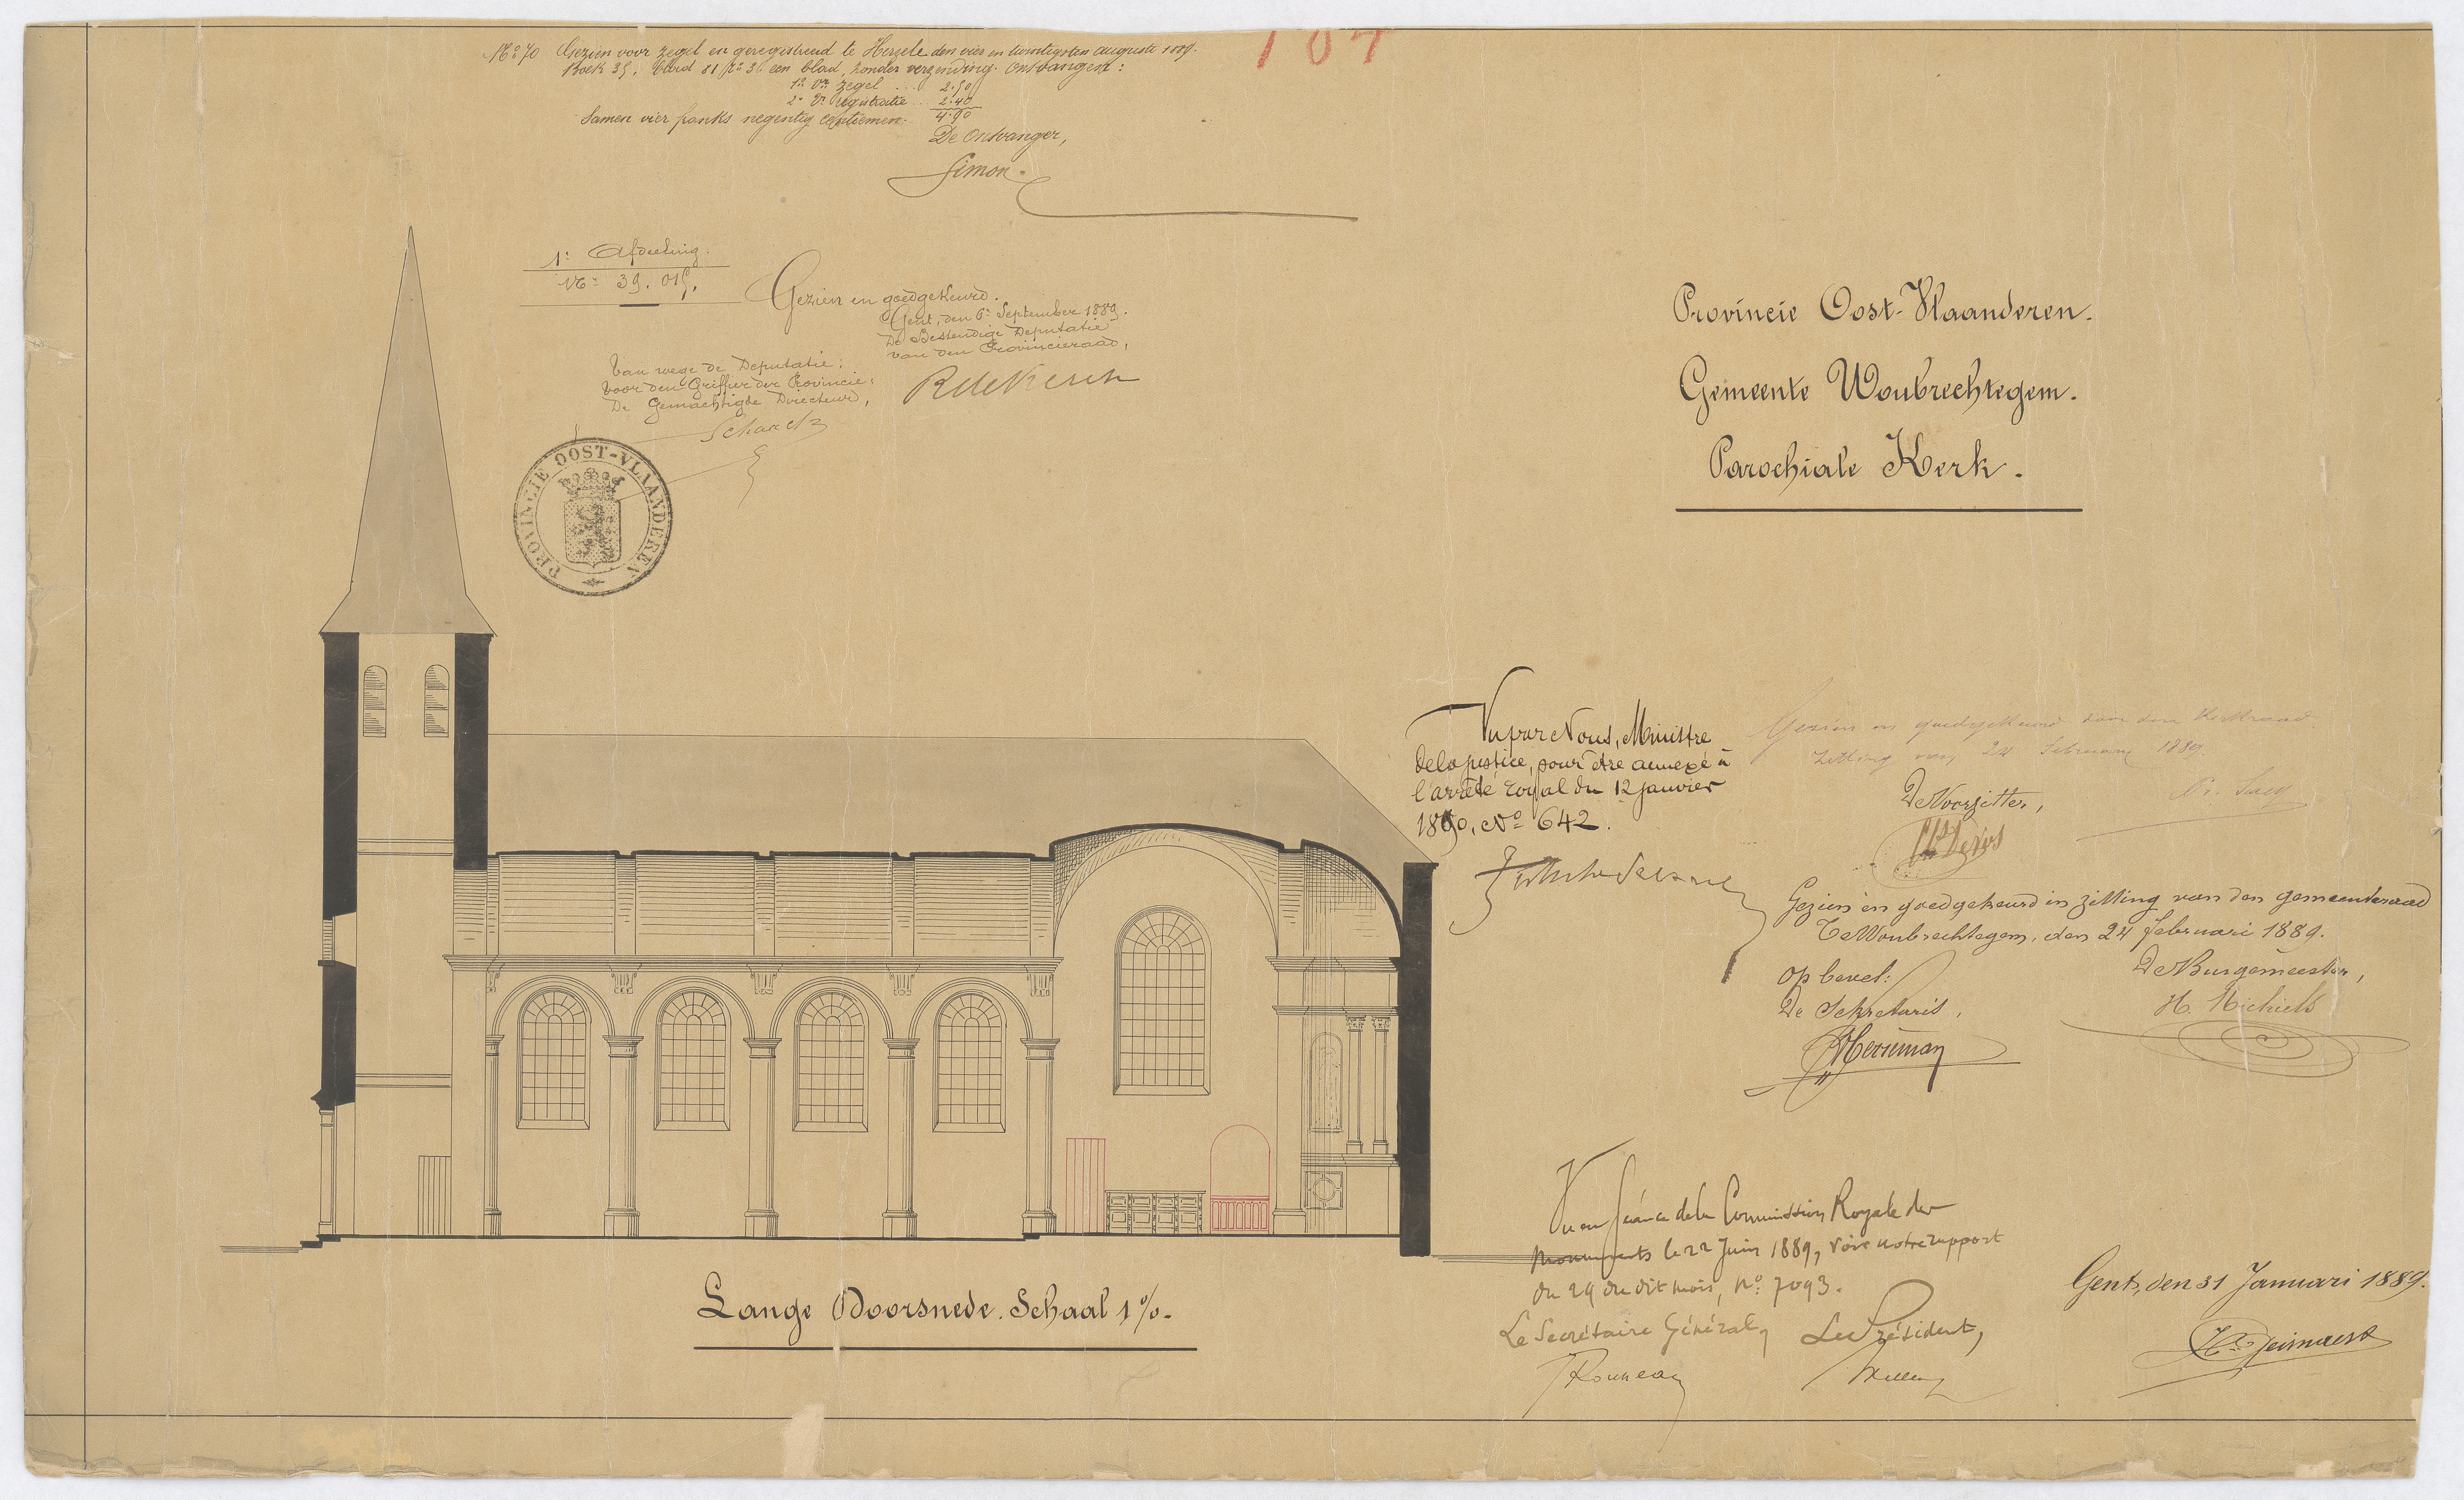 107
No 70 Gezien voor zegel en geregistreerd te Herzele den vier en twintigsten augusti 1889.
Boek 35, blad 81 een blad, zonder verzending. Ontvangen:
1o Vr zegel ... 2.50
2o Vr registratie .. 2.40
Samen vier franks negentig centiemen. 4.90
De Ontvanger,
Simon.
1e Afdeeling.
No 39.015.
Gezien en goedgekeurd.
Gent, den 6n September 1889.
De Bestendige Deputatie
van den Provincieraad,
Van wege de Deputatie:
Voor den Griffier der Provincie,
De Gemachtigde Directeur,
PROVINCIE OOST-VLAANDEREN
Provincie Oost-Vlaanderen.
Gemeente Woubrechtegem.
Parochiale Kerk.
Vu par Nous, Ministre
de la justice, pour être annexé à
l'arrêté royal du 12 janvier
1890, No 642.
Gezien en goedgekeurd door den Kerkraad
zitting van 24 Februari 1889
De Voorzitter,
Gezien en goedgekeurd in zitting van den gemeenteraad
Te Woubrechtegem, den 24 februari 1889.
Op bevel:
De Sekretaris,
De Burgemeester,
H. Michiels
Vu en séance de la Commission Royale des
Monuments le 22 Juin 1889, voir notre rapport
du 29 du dit mois, No 7093.
Le Secrétaire Général,
Le Président,
Rousseau
Gent, den 31 Januari 1889.
Lange Doorsnede. Schaal 1%.